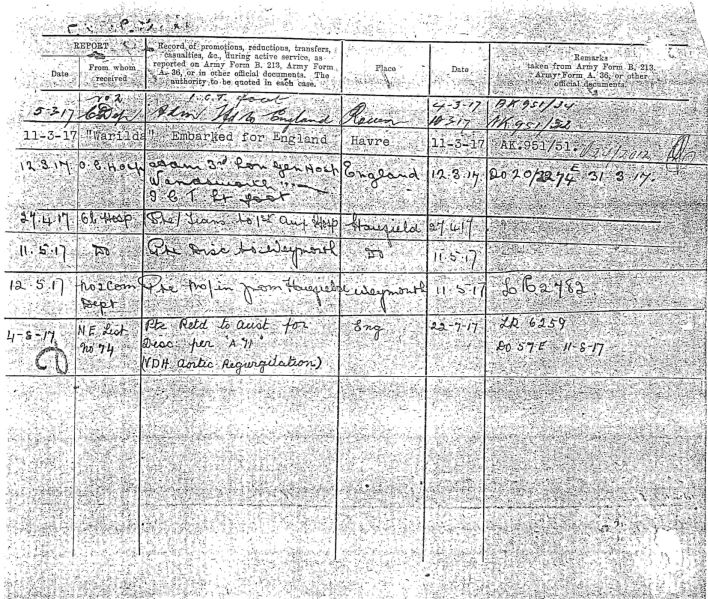 REPORT
Date
From whom received
Record of promotions, reductions, transfers, casualties, &c., during active service, as reported on Army Form B. 213, Army Form A. 36, or in other official documents. The authority to be quoted in each case.
Place
Date
Remarks
taken from Army Form B. 213, Army Form A. 36, or other official documents.
I.C.T. foot
4-3-17 AK951/34
5-3-17 England Rouen AK951/32
11-3-17 "Warilda" Embarked for England Havre 11-3-17 AK.951/51.
12.3.17 O.C. Hosp 3rd Lon Gen Hosp England 12.3.17. DO 20/2274E 31.3.17.
Wandsworth
I.C.T. Lt foot
27.4.17 Hosp Pte Trans to 1st Aux Hosp Harefield 27.4.17
11.5.17 Do Pte Disc to Weymouth Do 11.5.17
12.5.17 No2 Com Dept Pte M/in from Harefield Weymouth 11.5.17 LB2782.
4-8-17 N.E. List No 74 Pte Retd to Aust for Eng 22-7-17 LR 6259
Disc per "A 71" DO 57E 11-8-17
(VDH Aortic Regurgitation)